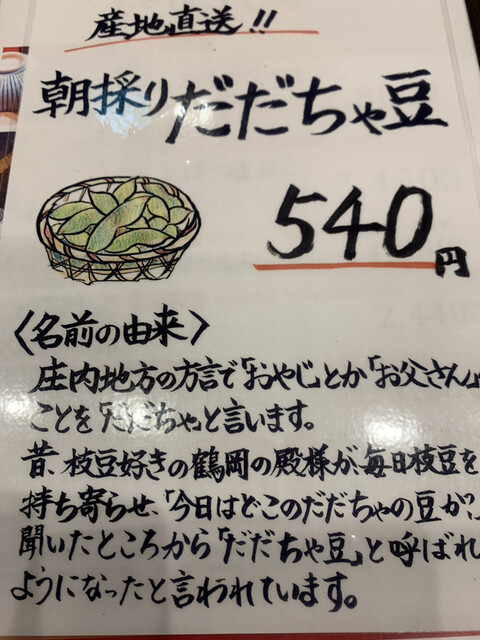 産地直送!!
朝採りだだちゃ豆
540円
〈名前の由来〉
庄内地方の方言で「おやじ」とか「お父さん」
ことを「だだちゃ」と言います。
昔、枝豆好きの鶴岡の殿様が、毎日枝豆を
持ち寄らせ、「今日はどこのだだちゃの豆か?」
聞いたところから「だだちゃ豆」と呼ばれ
ようになったと言われています。